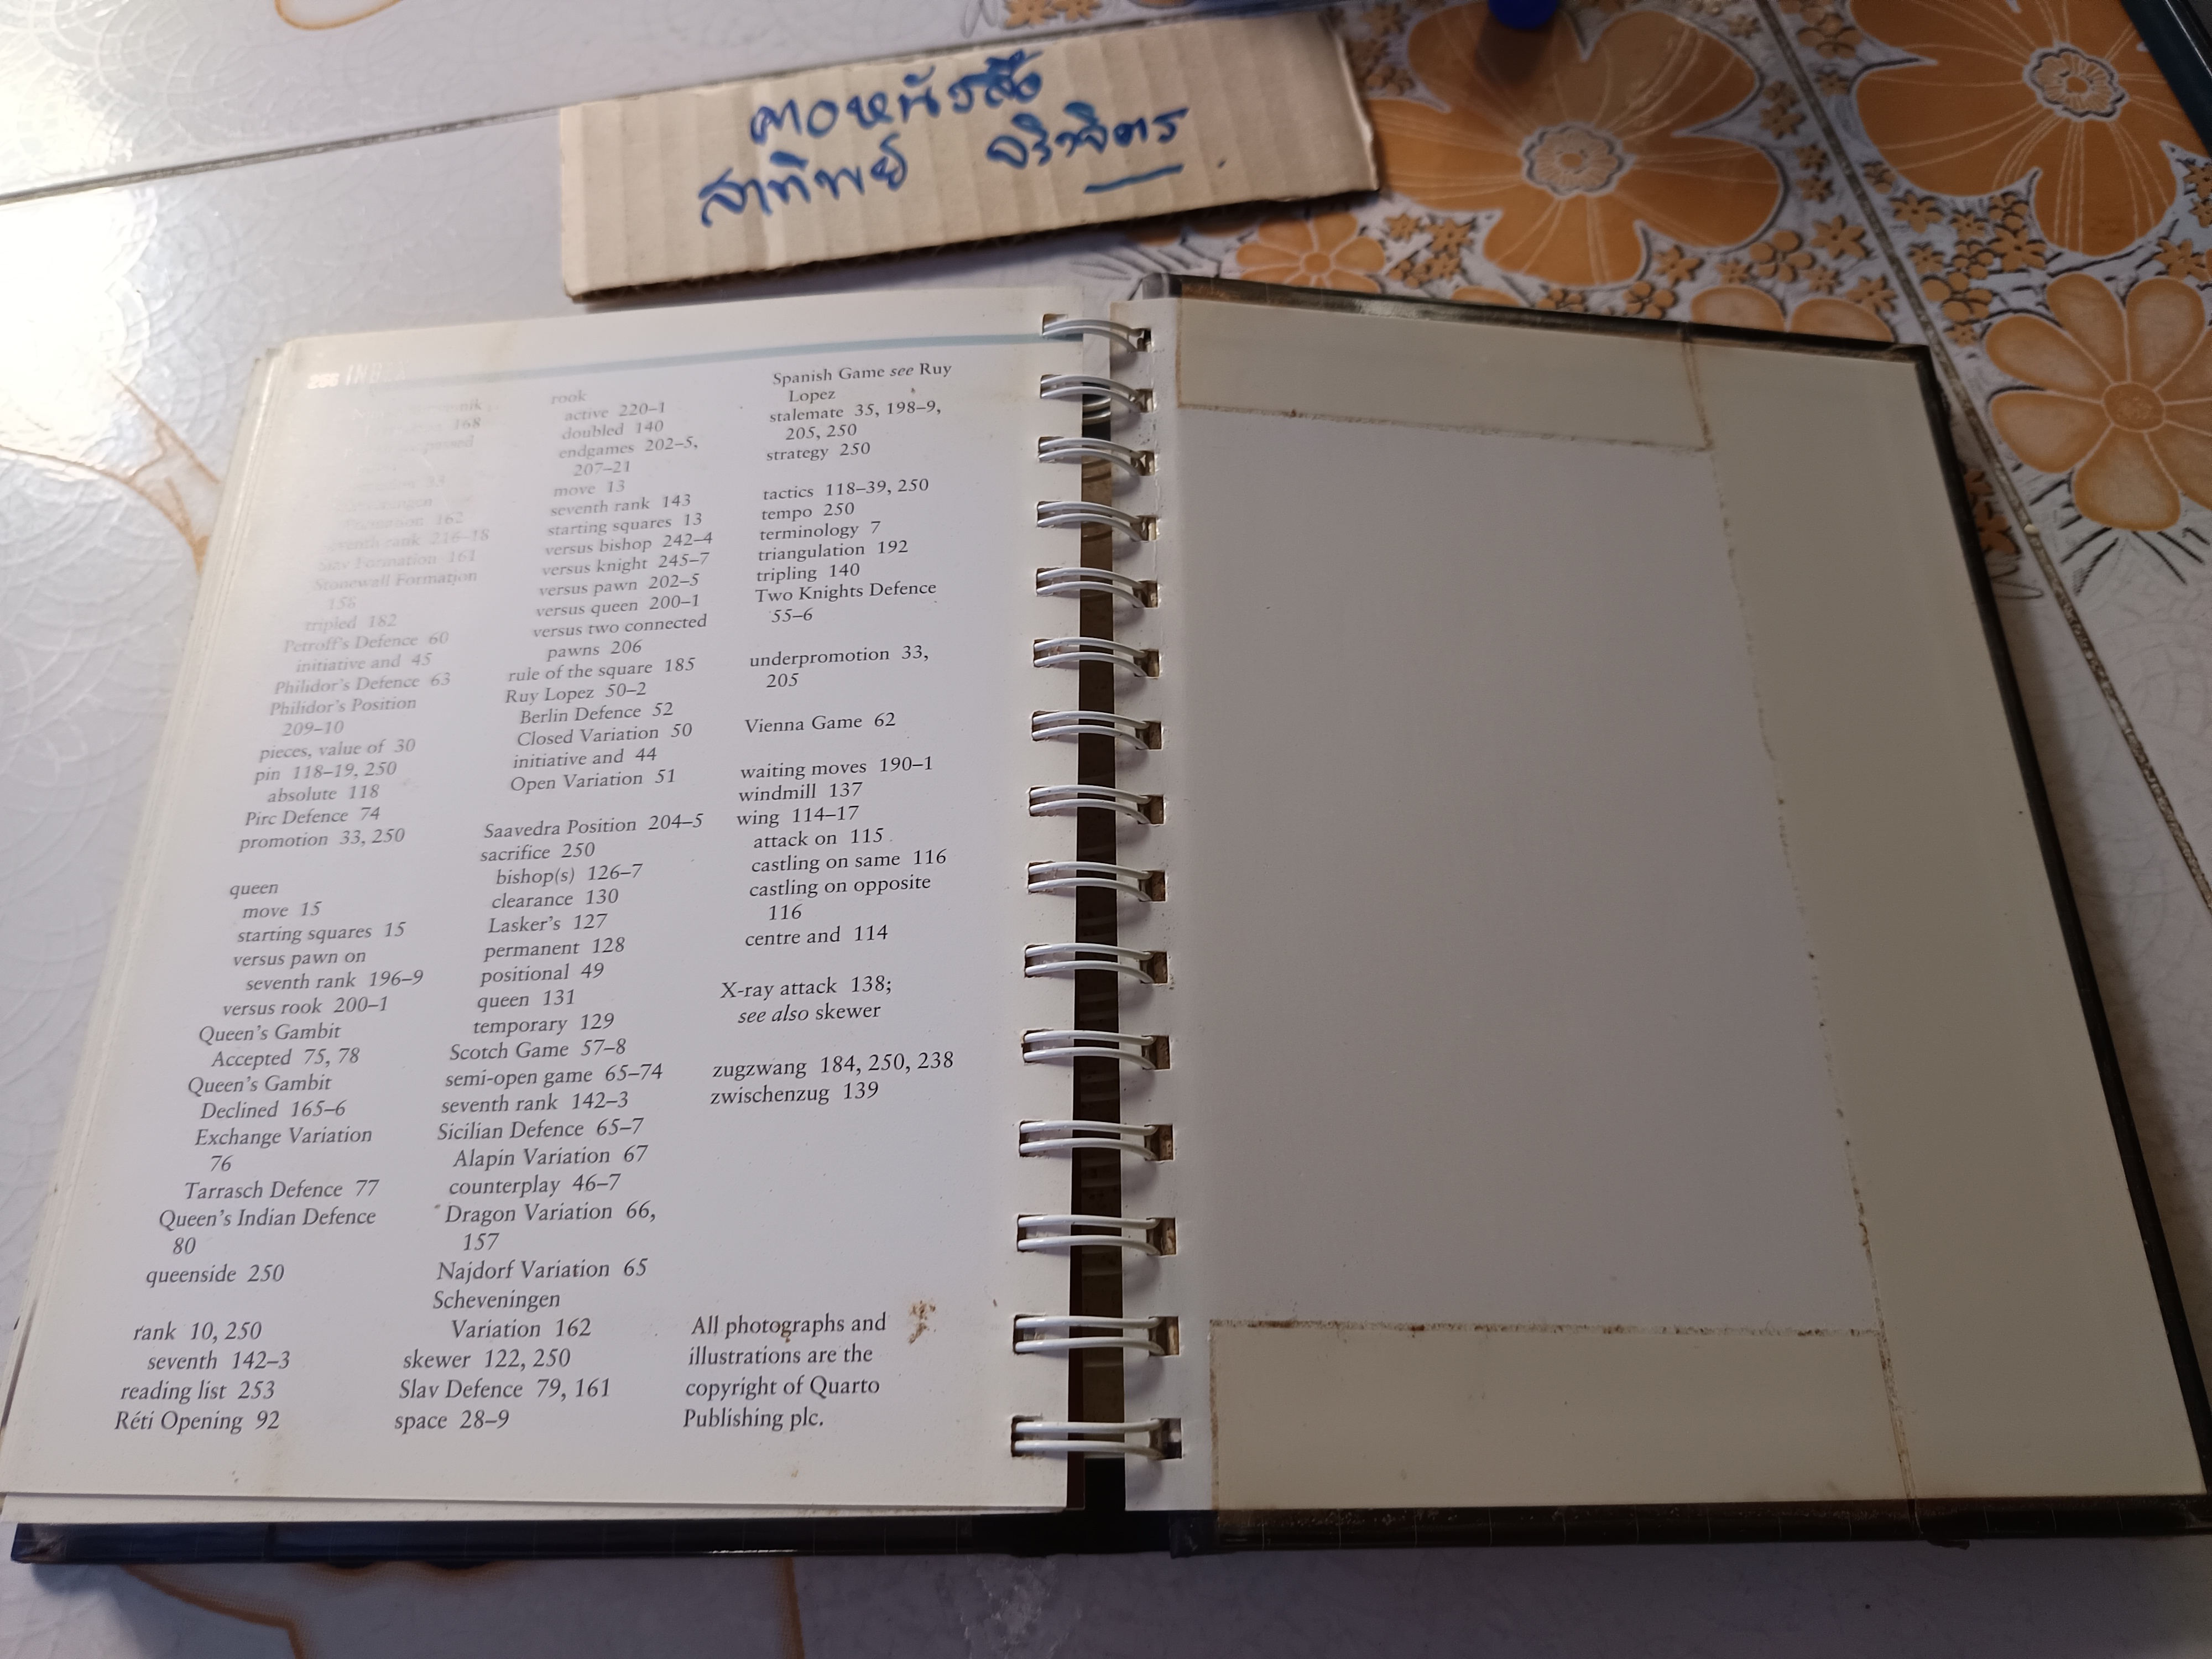 คอหนังสือ
สาทิพย์
256 INDEX
168
162
seventh rank 216–18
Slav Formation 161
Stonewall Formation
158
tripled 182
Petroff's Defence 60
initiative and 45
Philidor's Defence 63
Philidor's Position
209–10
pieces, value of 30
pin 118–19, 250
absolute 118
Pirc Defence 74
promotion 33, 250
queen
move 15
starting squares 15
versus pawn on
seventh rank 196–9
versus rook 200–1
Queen's Gambit
Accepted 75, 78
Queen's Gambit
Declined 165–6
Exchange Variation
76
Tarrasch Defence 77
Queen's Indian Defence
80
queenside 250
rank 10, 250
seventh 142–3
reading list 253
Réti Opening 92
rook
active 220–1
doubled 140
endgames 202–5,
207–21
move 13
seventh rank 143
starting squares 13
versus bishop 242–4
versus knight 245–7
versus pawn 202–5
versus queen 200–1
versus two connected
pawns 206
rule of the square 185
Ruy Lopez 50–2
Berlin Defence 52
Closed Variation 50
initiative and 44
Open Variation 51
Saavedra Position 204–5
sacrifice 250
bishop(s) 126–7
clearance 130
Lasker's 127
permanent 128
positional 49
queen 131
temporary 129
Scotch Game 57–8
semi-open game 65–74
seventh rank 142–3
Sicilian Defence 65–7
Alapin Variation 67
counterplay 46–7
Dragon Variation 66,
157
Najdorf Variation 65
Scheveningen
Variation 162
skewer 122, 250
Slav Defence 79, 161
space 28–9
Spanish Game see Ruy
Lopez
stalemate 35, 198–9,
205, 250
strategy 250
tactics 118–39, 250
tempo 250
terminology 7
triangulation 192
tripling 140
Two Knights Defence
55–6
underpromotion 33,
205
Vienna Game 62
waiting moves 190–1
windmill 137
wing 114–17
attack on 115
castling on same 116
castling on opposite
116
centre and 114
X-ray attack 138;
see also skewer
zugzwang 184, 250, 238
zwischenzug 139
All photographs and
illustrations are the
copyright of Quarto
Publishing plc.